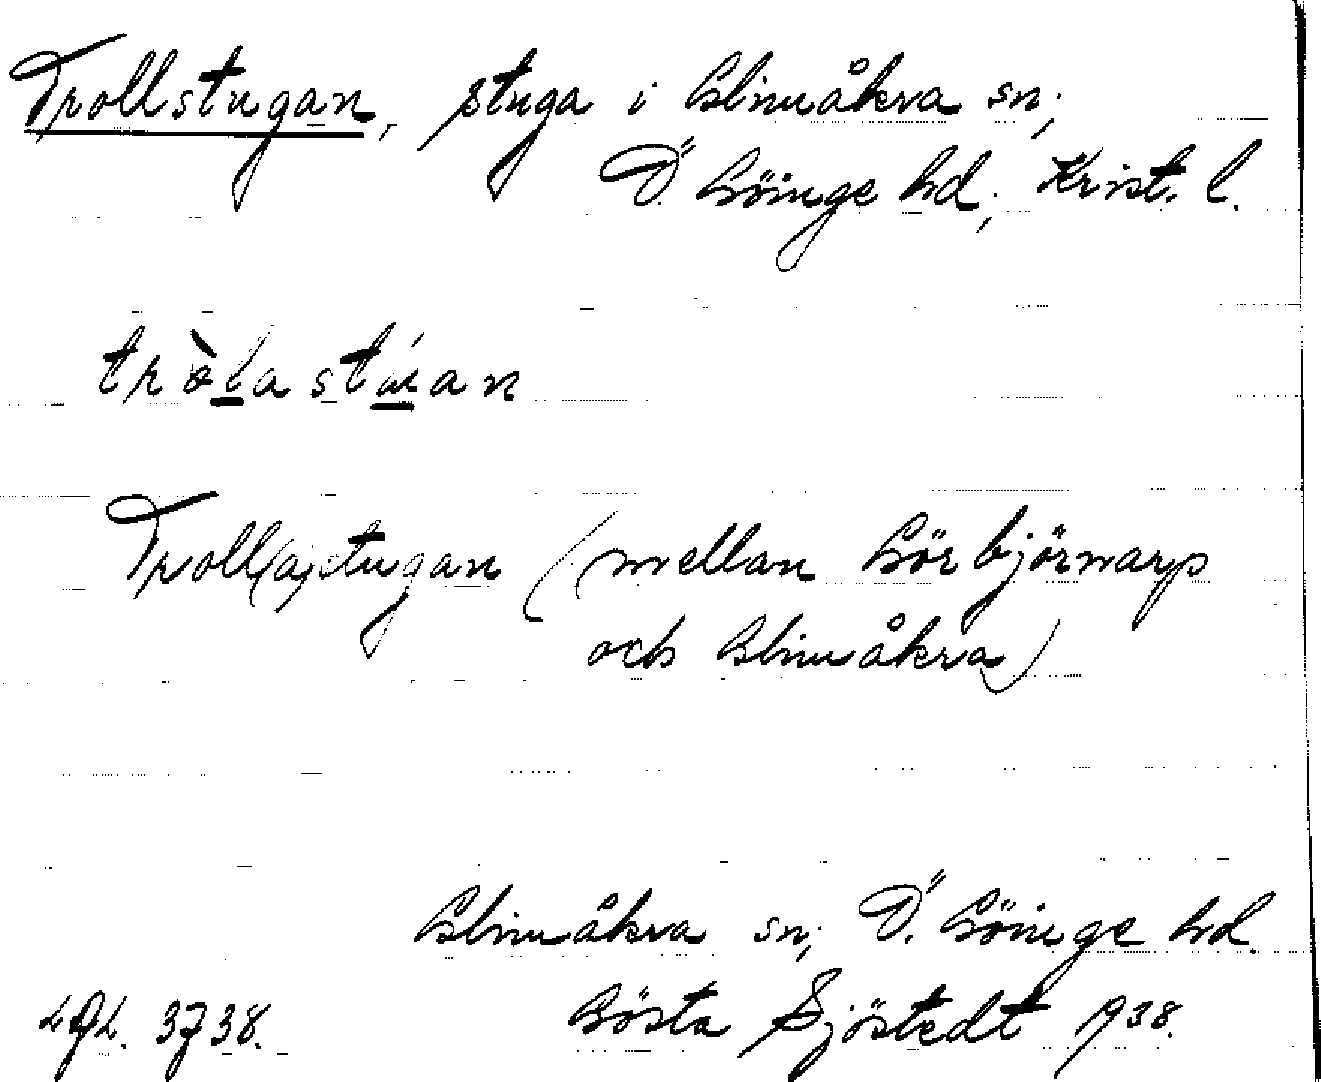 Trollstugan, stuga i Glimåkra sn;
Ö. Göinge hd; Krist. l.
tròlastúan
Troll(a)stugan (mellan Görbjörnarp
och Glimåkra)
Glimåkra sn; Ö. Göinge hd.
3738. Gösta Sjöstedt 1938.